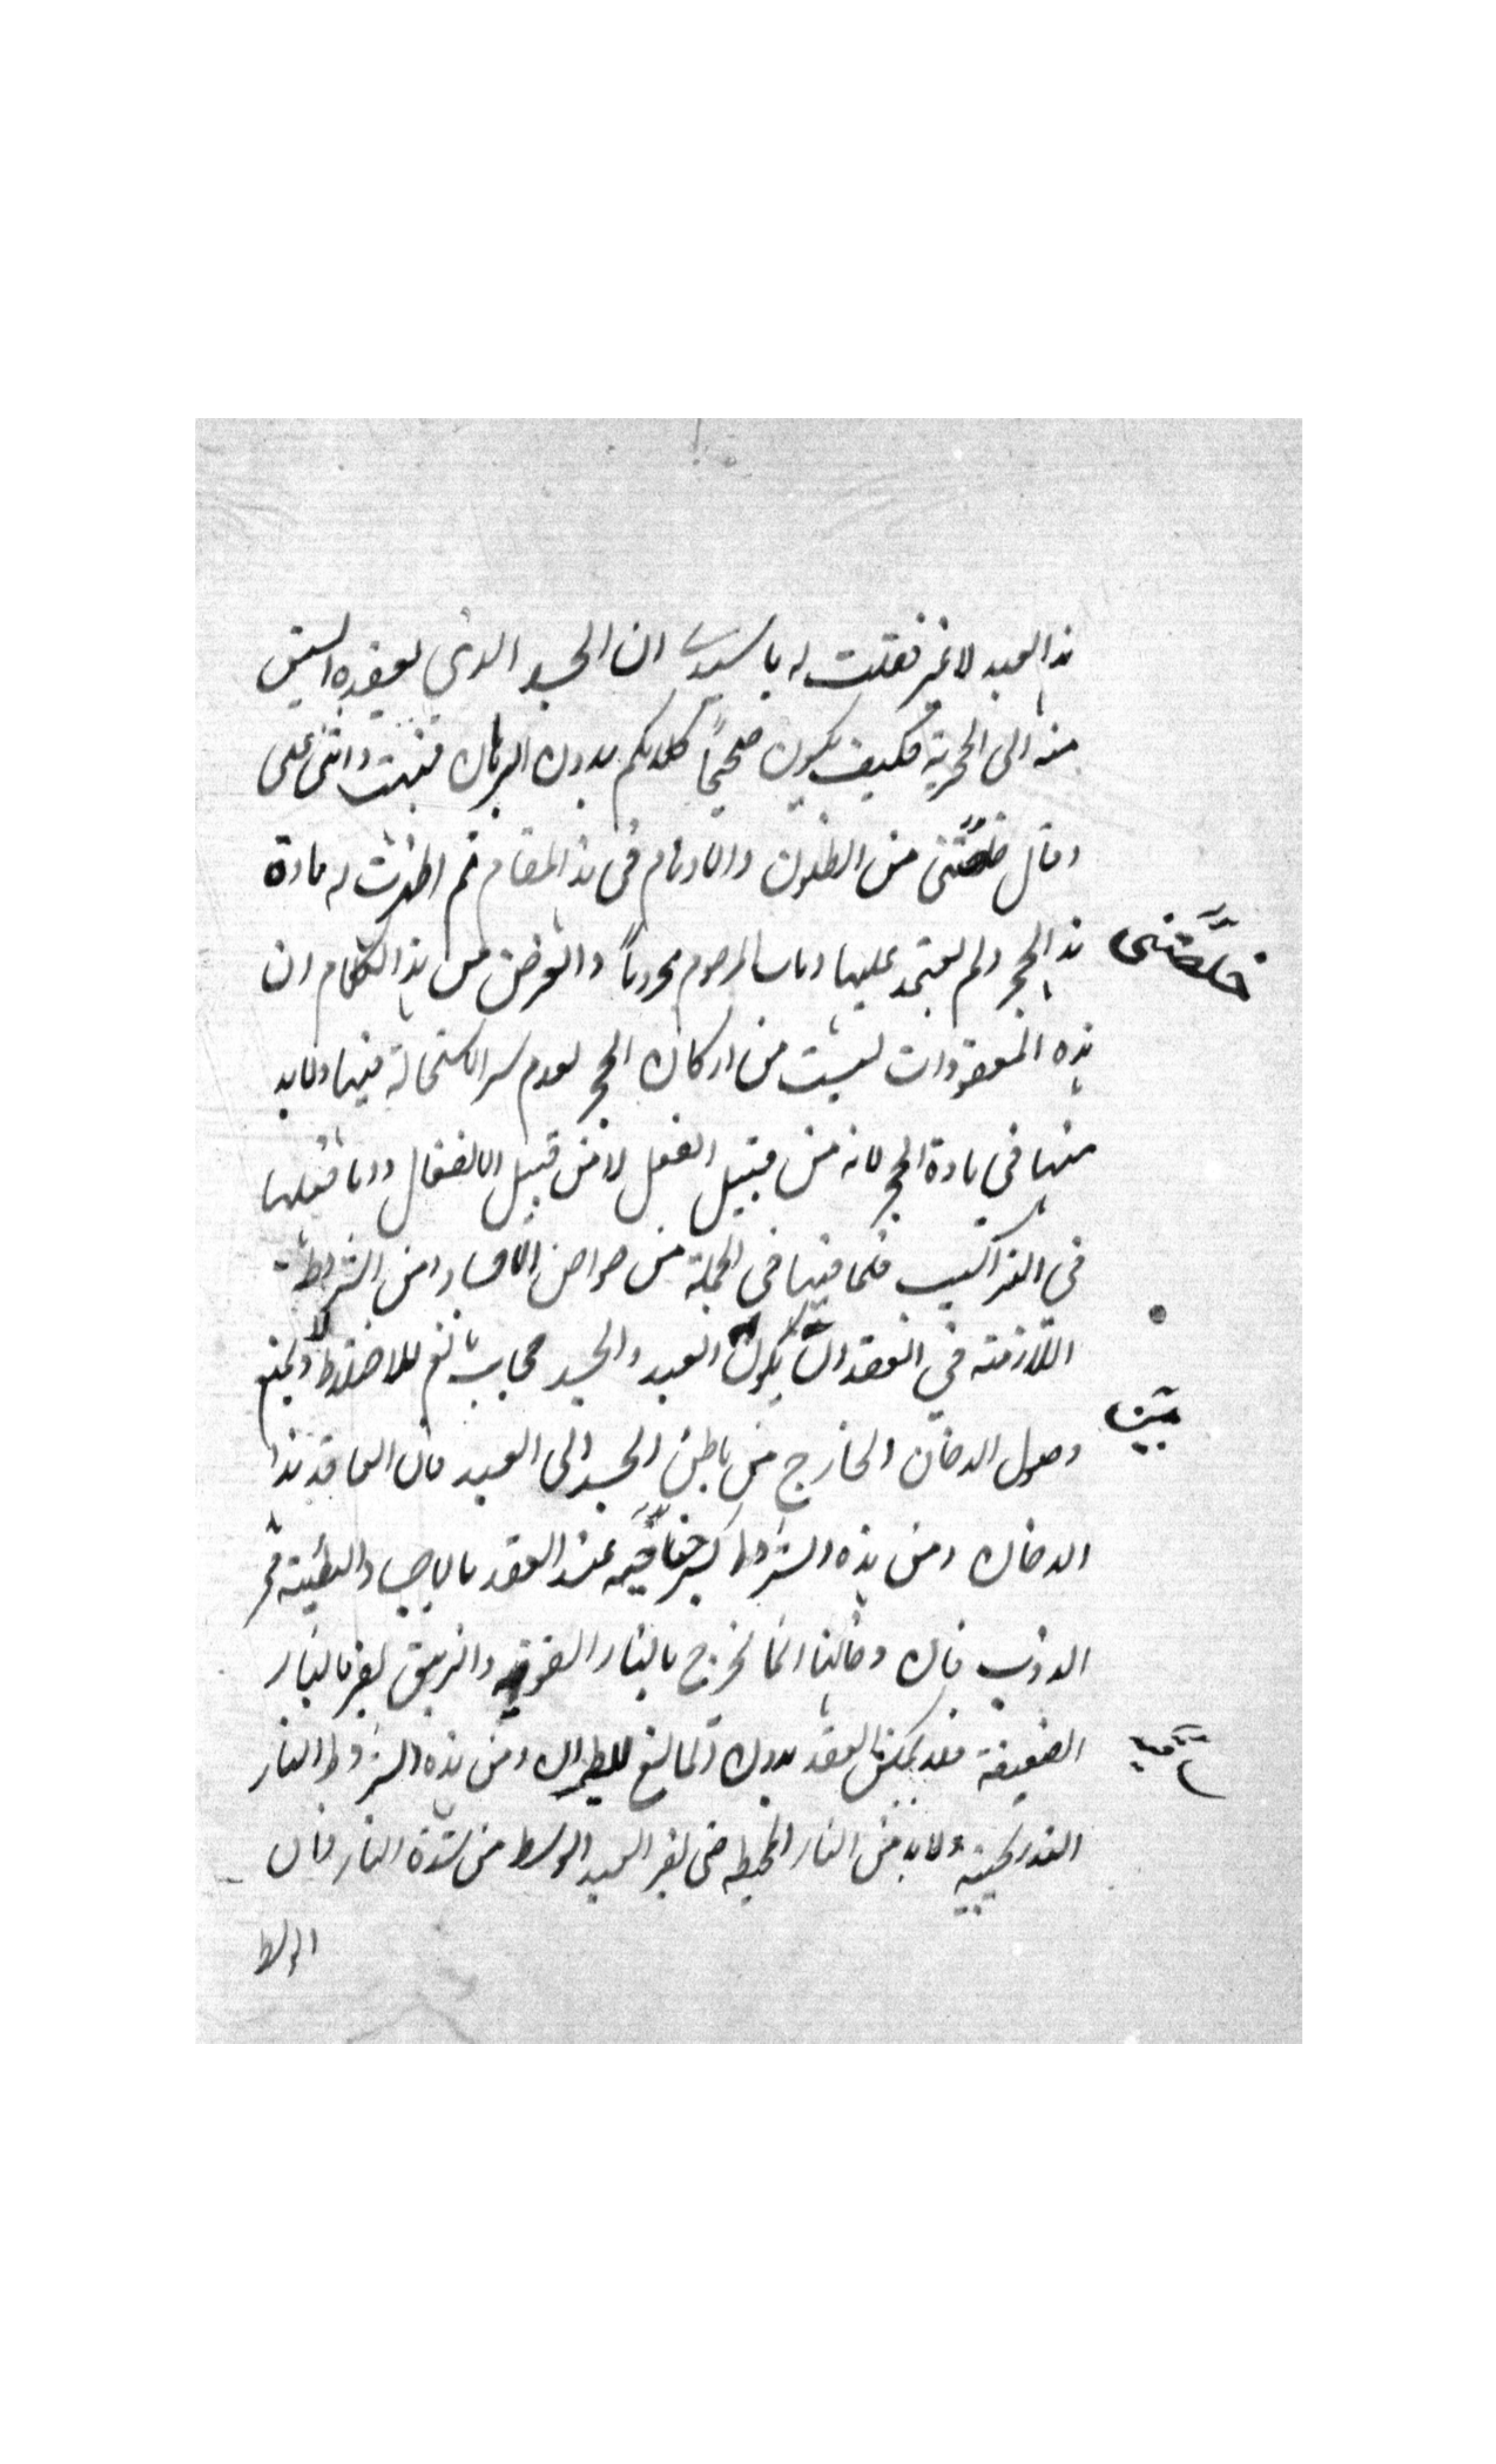 هذا العبد لا غير فقلت له يا سيدى ان الجسد الذى يعقده ليس
منه الى الحجرية فكيف يكون صحيحاً كلامكم بدون البرهان فبهت واثنى على
وقال خلصتنى من الظنون والاوهام فى هذا المقام ثم اظهرت له مادة
خلَّصتنى
هذا الحجر ولم يعتمد عليها ومات المرحوم محروماً والغرض من هذا الكلام ان
هذه المعقودات ليست من اركان الحجر لعدم سر الاستحالة فيها ولا بد
منها فى مادة الحجر لانه من قبيل الفعل لا من قبيل الانفعال واما فعلها
فى التراكيب فلما فيها فى الجملة من خواص الاجساد ومن الشرائط
اللازمة فى العقد ان يكون بين العبد والجسد حجاب مانع للاختلاط ولا يمنع
بين
وصول الدخان الخارج من باطن الجسد الى العبد فان العاقد هذا
الدخان ومن هذه الشروط عند العقد بالاجساد البطيئة
الذوب فان دخانها انما يخرج بالنار القوية والزيبق يفر بالنار
الضعيفة فلا يمكن العقد بدون المانع للطيران ومن هذه الشروط النار
التدريجية ولا بد من النار المحيطة حتى يفر العبد الى الوسط من شدة النار فان
الوسط